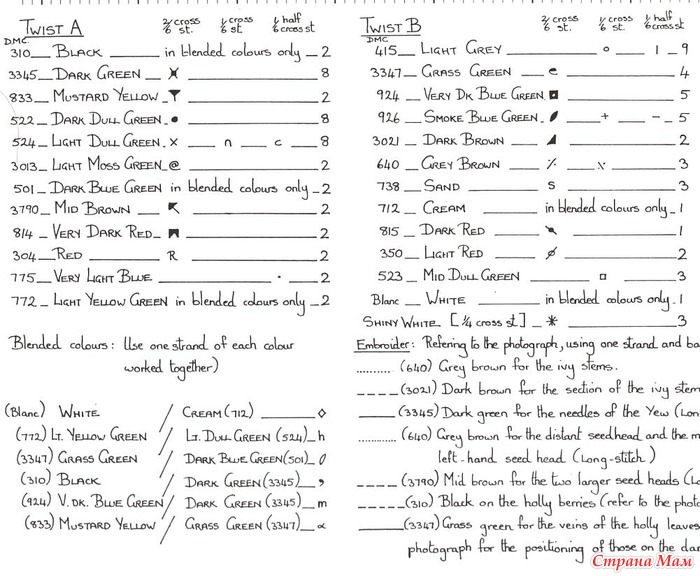 TWIST A 2/6 cross st. 1/6 cross st. 1/6 half cross st
DMC
310 BLACK in blended colours only 2
3345 DARK GREEN 8
833 MUSTARD YELLOW 2
522 DARK DULL GREEN ● 8
524 LIGHT DULL GREEN x n c 8
3013 LIGHT MOSS GREEN @ 2
501 DARK BLUE GREEN in blended colours only 2
3790 MID BROWN 2
814 VERY DARK RED 2
304 RED R 2
775 VERY LIGHT BLUE · 2
772 LIGHT YELLOW GREEN in blended colours only 2
Blended colours: Use one strand of each colour
worked together)
(Blanc) WHITE / CREAM (712) ◇
(772) LT. YELLOW GREEN / LT. DULL GREEN (524) h
(3347) GRASS GREEN / DARK BLUE GREEN (501) 0
(310) BLACK / DARK GREEN (3345) ,
(924) V. DK. BLUE GREEN / DARK GREEN (3345) m
(833) MUSTARD YELLOW / GRASS GREEN (3347) ∝
TWIST B 2/6 cross st. 1/6 cross st. 1/6 half cross st
DMC
415 LIGHT GREY o 1 9
3347 GRASS GREEN e 4
924 VERY DK BLUE GREEN 5
926 SMOKE BLUE GREEN + - 5
3021 DARK BROWN 2
640 GREY BROWN ⁒ x 3
738 SAND S 3
712 CREAM in blended colours only 1
815 DARK RED 1
350 LIGHT RED ø 2
523 MID DULL GREEN □ 3
Blanc WHITE in blended colours only 1
SHINY WHITE [¼ cross st] * 3
Embroider: Referring to the photograph, using one strand and ba
(640) Grey brown for the ivy stems.
(3021) Dark brown for the section of the ivy stem
(3345) Dark green for the needles of the Yew (Lon
(640) Grey brown for the distant seedhead and the m
left-hand seed head (Long-stitch)
(3790) Mid brown for the two larger seed heads (Lo
(310) Black on the holly berries (refer to the photo
(3347) Grass green for the veins of the holly leaves
photograph for the positioning of those on the da
Страна Мам